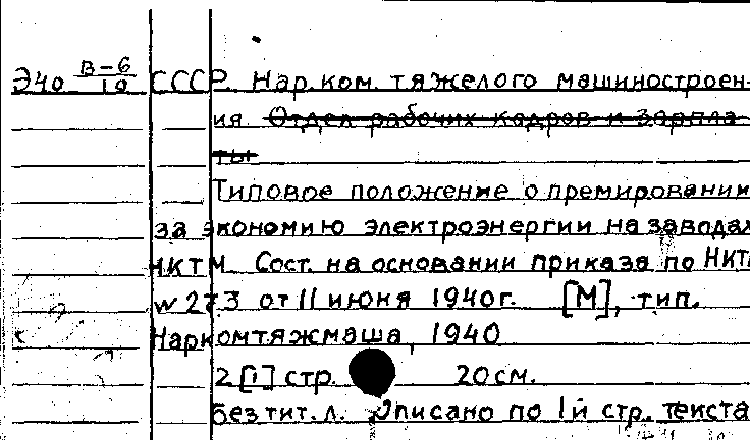 Э40 В-6/10 СССР. Нар.ком. тяжелого машиностроен-
ия Отдел рабочих кадров и зарпла-
ты
Типовое положение о премировании
за экономию электроэнергии на заводах
НКТМ. Сост. на основании приказа по НКТМ
№ 273 от 11 июня 1940г. [М], тип.
Наркомтяжмаша, 1940
2 [1] стр. 20см.
Без тит. л. Описано по 1й стр. текста